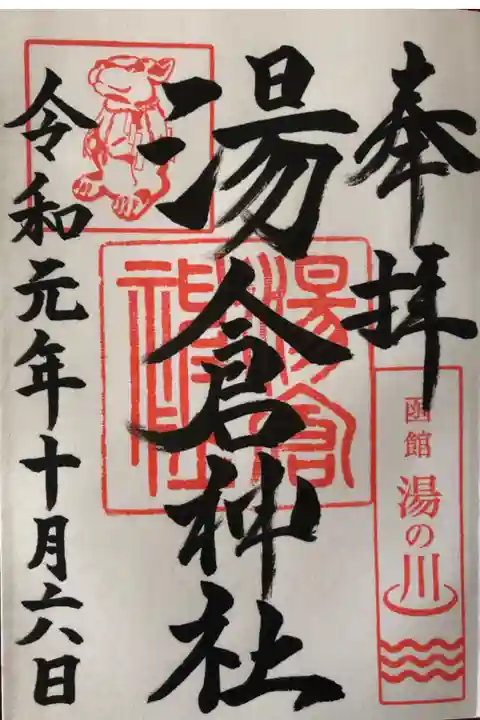 奉拝
函館 湯の川
湯倉神社
湯倉
神社
令和元年十月六日